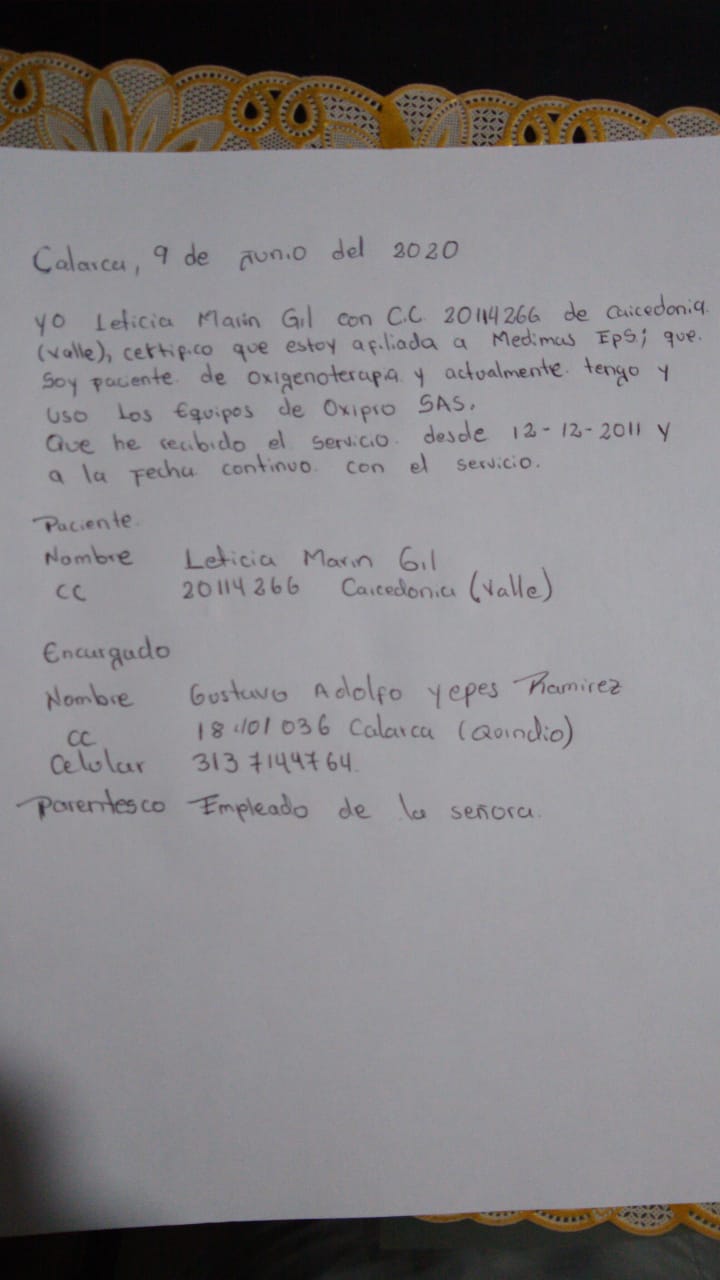 Calarca, 9 de Junio del 2020
yo Leticia Marin Gil con C.C. 20114266 de Caicedonia.
(valle), certifico que estoy afiliada a Medimas EPS; que.
Soy paciente. de oxigenoterapia y actualmente. tengo y
uso Los Equipos de Oxipro SAS.
Que he recibido el servicio. desde 12-12-2011 y
a la Fecha continuo. con el servicio.
Paciente.
Nombre Leticia Marin Gil
CC 20114266 Caicedonia (Valle)
Encargado
Nombre Gustavo Adolfo yepes Ramirez
CC 18.401036 Calarca (Quindio)
Celular 3137144764.
Parentesco Empleado de la señora.